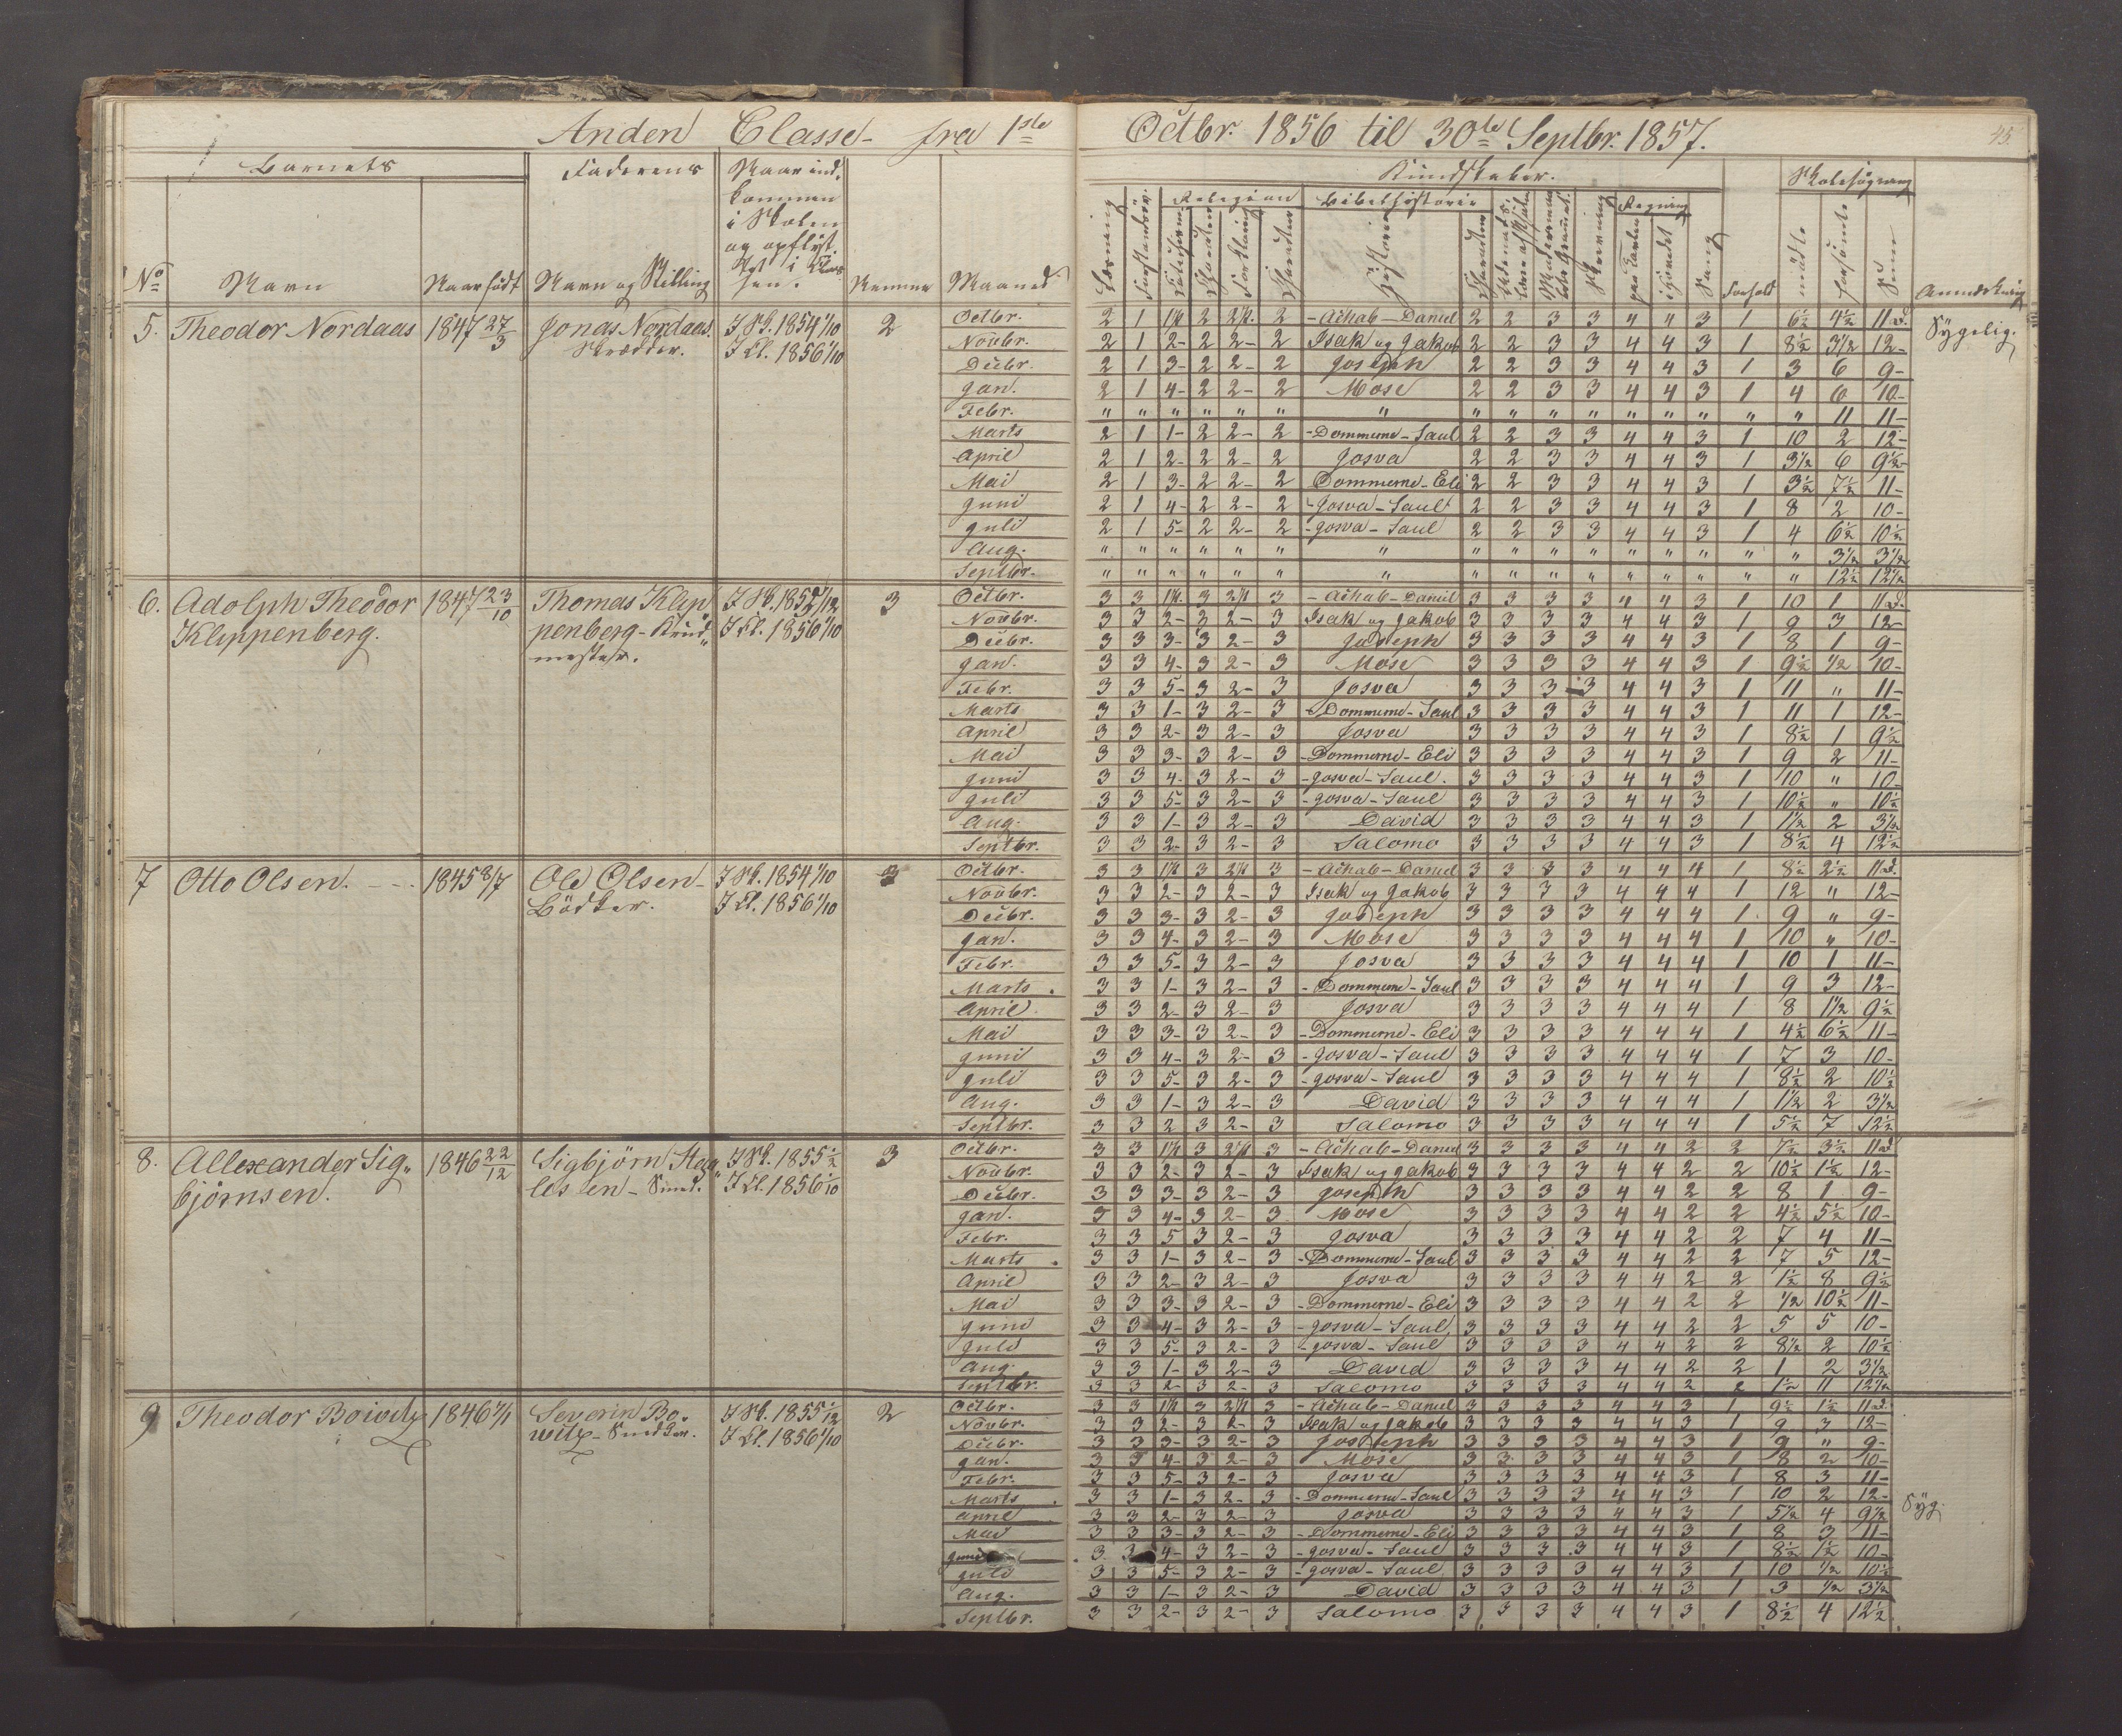 Anden Classe - fra 1ste Octbr. 1856 til 30te Septbr. 1857.
45.
Barnets Faderens Naar ind- Kundskaber. Skolesøgning
kommen
i Skolen Religion Bibelhistorie Regning
og opflyt-
tet i Clas-
No Navn Naar født Navn og Stilling sen. Nemme Maaned Læsning Historie Skrivning Sang Forhold mødte forsømte Sum Anmærkning
5. Theodor Nordaas 1847 27/3 Jonas Nordaas. I Sk. 1854 1/10 2 Octbr. 2 1 1ste 2 2det 2 - Achab - Daniel 2 2 3 3 4 4 3 1 6½ 4½ 11 D. Sygelig.
Skrædder. I Cl. 1856 1/10 Novbr. 2 1 2- 2 2- 2 Isak og Jakob 2 2 3 3 4 4 3 1 8½ 3½ 12-
Decbr. 2 1 3- 2 2- 2 Joseph 2 2 3 3 4 4 3 1 3 6 9-
Jan. 2 1 4- 2 2- 2 Mose 2 2 3 3 4 4 3 1 4 6 10-
Febr. " " " " " " " " " " " " " " " " 11 11-
Marts 2 1 1- 2 2- 2 - Dommerne - Saul 2 2 3 3 4 4 3 1 10 2 12-
April 2 1 2- 2 2- 2 Josva 2 2 3 3 4 4 3 1 3½ 6 9½-
Mai 2 1 3- 2 2- 2 Dommerne - Eli 2 2 3 3 4 4 3 1 3½ 7½ 11-
Juni 2 1 4- 2 2- 2 - Josva - Saul 2 2 3 3 4 4 3 1 8 2 10-
Juli 2 1 5- 2 2- 2 - Josva - Saul 2 2 3 3 4 4 3 1 4 6½ 10½
Aug. " " " " " " " " " " " " " " " " 3½ 3½
Septbr. " " " " " " " " " " " " " " " " 12½ 12½
6. Adolph Theodor 1847 23/10 Thomas Klip I Sk. 185 /12 3 Octbr. 3 3 1ste 3 2det 3 - Achab - Daniel 3 3 3 3 4 4 3 1 10 1 11 D.
Klippenberg. penberg - I Cl. 1856 1/10 Novbr. 3 3 2- 3 2- 3 Isak og Jakob 3 3 3 3 4 4 3 1 9 3 12
mester. Decbr. 3 3 3- 3 2- 3 Joseph 3 3 3 3 4 4 3 1 8 1 9-
Jan. 3 3 4- 3 2- 3 Mose 3 3 3 3 4 4 3 1 9½ ½ 10-
Febr. 3 3 5- 3 2- 3 Josva 3 3 3 3 4 4 3 1 11 " 11-
Marts 3 3 1- 3 2- 3 - Dommerne - Saul 3 3 3 3 4 4 3 1 11 1 12-
April 3 3 2- 3 2- 3 Josva 3 3 3 3 4 4 3 1 8½ 1 9½
Mai 3 3 3- 3 2- 3 - Dommerne - Eli 3 3 3 3 4 4 3 1 9 2 11-
Juni 3 3 4- 3 2- 3 - Josva - Saul. 3 3 3 3 4 4 3 1 10 " 10
Juli 3 3 5- 3 2- 3 - Josva - Saul 3 3 3 3 4 4 3 1 10½ " 10½
Aug. 3 3 1- 3 2- 3 David 3 3 3 3 4 4 3 1 1½ 2 3½
Septbr. 3 3 2- 3 2- 3 Salomo 3 3 3 3 4 4 3 1 8½ 4 12½
7 Otto Olsen. 1845 8/7 Ole Olsen - I Sk. 1854 1/10 3 Octbr. 3 3 1ste 3 2det 3 - Achab - Daniel 3 3 3 3 4 4 4 1 8½ 2½ 11 D.
Bødker. I Cl. 1856 1/10 Novbr. 3 3 2- 3 2- 3 Isak og Jakob 3 3 3 3 4 4 4 1 12 " 12-
Decbr. 3 3 3- 3 2- 3 Joseph 3 3 3 3 4 4 4 1 9 " 9-
Jan. 3 3 4- 3 2- 3 Mose 3 3 3 3 4 4 4 1 10 " 10-
Febr. 3 3 5- 3 2- 3 Josva 3 3 3 3 4 4 4 1 10 1 11-
Marts 3 3 1- 3 2- 3 - Dommerne - Saul 3 3 3 3 4 4 4 1 9 3 12-
April 3 3 2- 3 2- 3 Josva 3 3 3 3 4 4 4 1 8 1½ 9½
Mai 3 3 3- 3 2- 3 - Dommerne - Eli 3 3 3 3 4 4 4 1 4½ 6½ 11-
Juni 3 3 4- 3 2- 3 - Josva - Saul 3 3 3 3 4 4 4 1 7 3 10-
Juli 3 3 5- 3 2- 3 - Josva - Saul 3 3 3 3 4 4 4 1 8½ 2 10½
Aug. 3 3 1- 3 2- 3 David 3 3 3 3 4 4 4 1 1½ 2 3½
Septbr. 3 3 2 3 2- 3 Salomo 3 3 3 3 4 4 4 1 5½ 7 12½
8. Allexander Sig„ 1846 22/12 Sigbjörn I Sk. 1855 1/2 3 Octbr. 3 3 1ste 3 2det 3 - Achab - Daniel 3 3 3 3 4 4 2 2 7½ 3½ 11 D
björnsen. lesen - Smed. I Cl. 1856 1/10 Novbr. 3 3 2- 3 2- 3 Isak og Jakob 3 3 3 3 4 4 2 2 10½ 1½ 12-
Decbr. 3 3 3- 3 2- 3 Joseph 3 3 3 3 4 4 2 2 8 1 9-
Jan. 3 3 4- 3 2- 3 Mose 3 3 3 3 4 4 2 2 4½ 5½ 10-
Febr. 3 3 5 3 2- 3 Josva 3 3 3 3 4 4 2 2 7 4 11-
Marts 3 3 1- 3 2- 3 - Dommerne - Saul 3 3 3 3 4 4 2 2 7 5 12-
April 3 3 2- 3 2- 3 Josva 3 3 3 3 4 4 2 2 1½ 8 9½
Mai 3 3 3- 3 2- 3 - Dommerne - Eli 3 3 3 3 4 4 2 2 ½ 10½ 11-
Juni 3 3 4- 3 2- 3 - Josva - Saul 3 3 3 3 4 4 2 2 5 5 10-
Juli 3 3 5- 3 2- 3 - Josva - Saul 3 3 3 3 4 4 2 2 8½ 2 10½
Aug. 3 3 1- 3 2- 3 David 3 3 3 3 4 4 2 2 1 2 3½
Septbr. 3 3 2- 3 2- 3 Salomo 3 3 3 3 4 4 2 2 1½ 11 12½
9 Theodor Boiwitz 1846 7/1 Severin Bo- I Sk. 1855 1/12 2 Octbr. 3 3 1ste 3 2det 3 - Achab - Daniel 3 3 3 3 4 4 3 1 9½ 1½ 11 D.
witz - Snedker. I Cl. 1856 1/10 Novbr. 3 3 2- 3 2- 3 Isak og Jakob 3 3 3 3 4 4 3 1 9 3 12-
Decbr. 3 3 3- 3 2- 3 Joseph 3 3 3 3 4 4 3 1 9 " 9-
Jan. 3 3 4- 3 2- 3 Mose 3 3 3 3 4 4 3 1 8 2 10-
Febr. 3 3 5- 3 2- 3 Josva 3 3 3 3 4 4 3 1 8 3 11-
Marts 3 3 1- 3 2- 3 - Dommerne - Saul 3 3 3 3 4 4 3 1 10 2 12- Syg.
April 3 3 2- 3 2- 3 Josva 3 3 3 3 4 4 3 1 5½ 4 9½
Mai 3 3 3- 3 2- 3 - Dommerne - Eli 3 3 3 3 4 4 3 1 8 3 11-
Juni 3 3 4- 3 2- 3 - Josva - Saul 3 3 3 3 4 4 3 1 8½ 1½ 10-
Juli 3 3 5- 3 2- 3 - Josva - Saul 3 3 3 3 4 4 3 1 10 ½ 10½
Aug. 3 3 1- 3 2- 3 David 3 3 3 3 4 4 3 1 3 ½ 3½
Septbr. 3 3 2- 3 2- 3 Salomo 3 3 3 3 4 4 3 1 8½ 4 12½